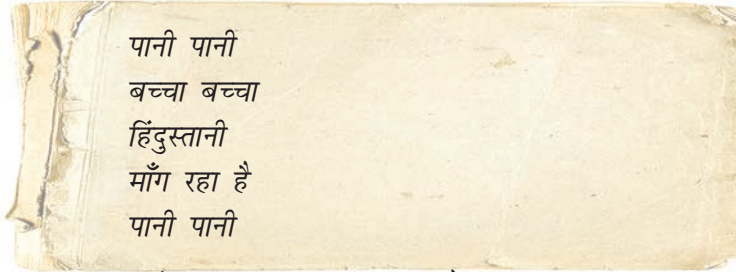 पानी पानी
बच्चा बच्चा
हिंदुस्तानी
माँग रहा है
पानी पानी